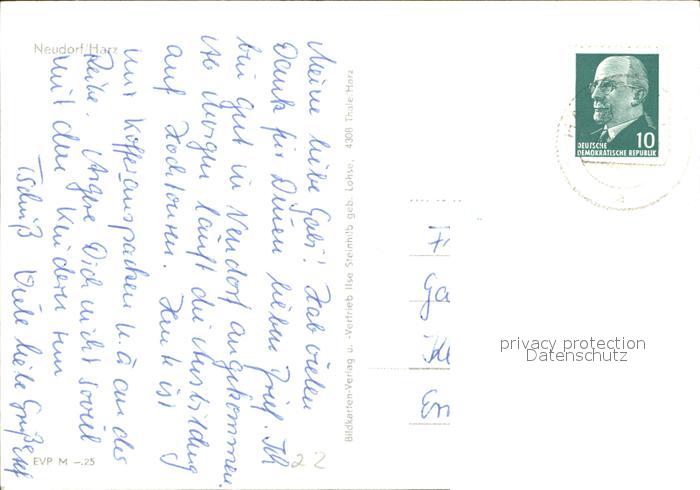 Neudorf/Harz
Meine liebe Gabi! Hab vielen
Dank für Deinen lieben Brief. Ich
bin gut in Neudorf angekommen.
Ab Morgen läuft die Ausbildung
auf Hochtouren. Heute ist
mit Kofferauspacken u. ä an der
Reihe. Ärgere Dich nicht soviel
mit den Kindern rum
Tschüß Viele liebe Grüße
EVP M –.25
22
Bildkarten-Verlag u. -Vertrieb Ilse Steinhilb geb. Lohse, 4308 Thale-Harz
DEUTSCHE
DEMOKRATISCHE REPUBLIK
10
a
Ga
privacy protection
Datenschutz